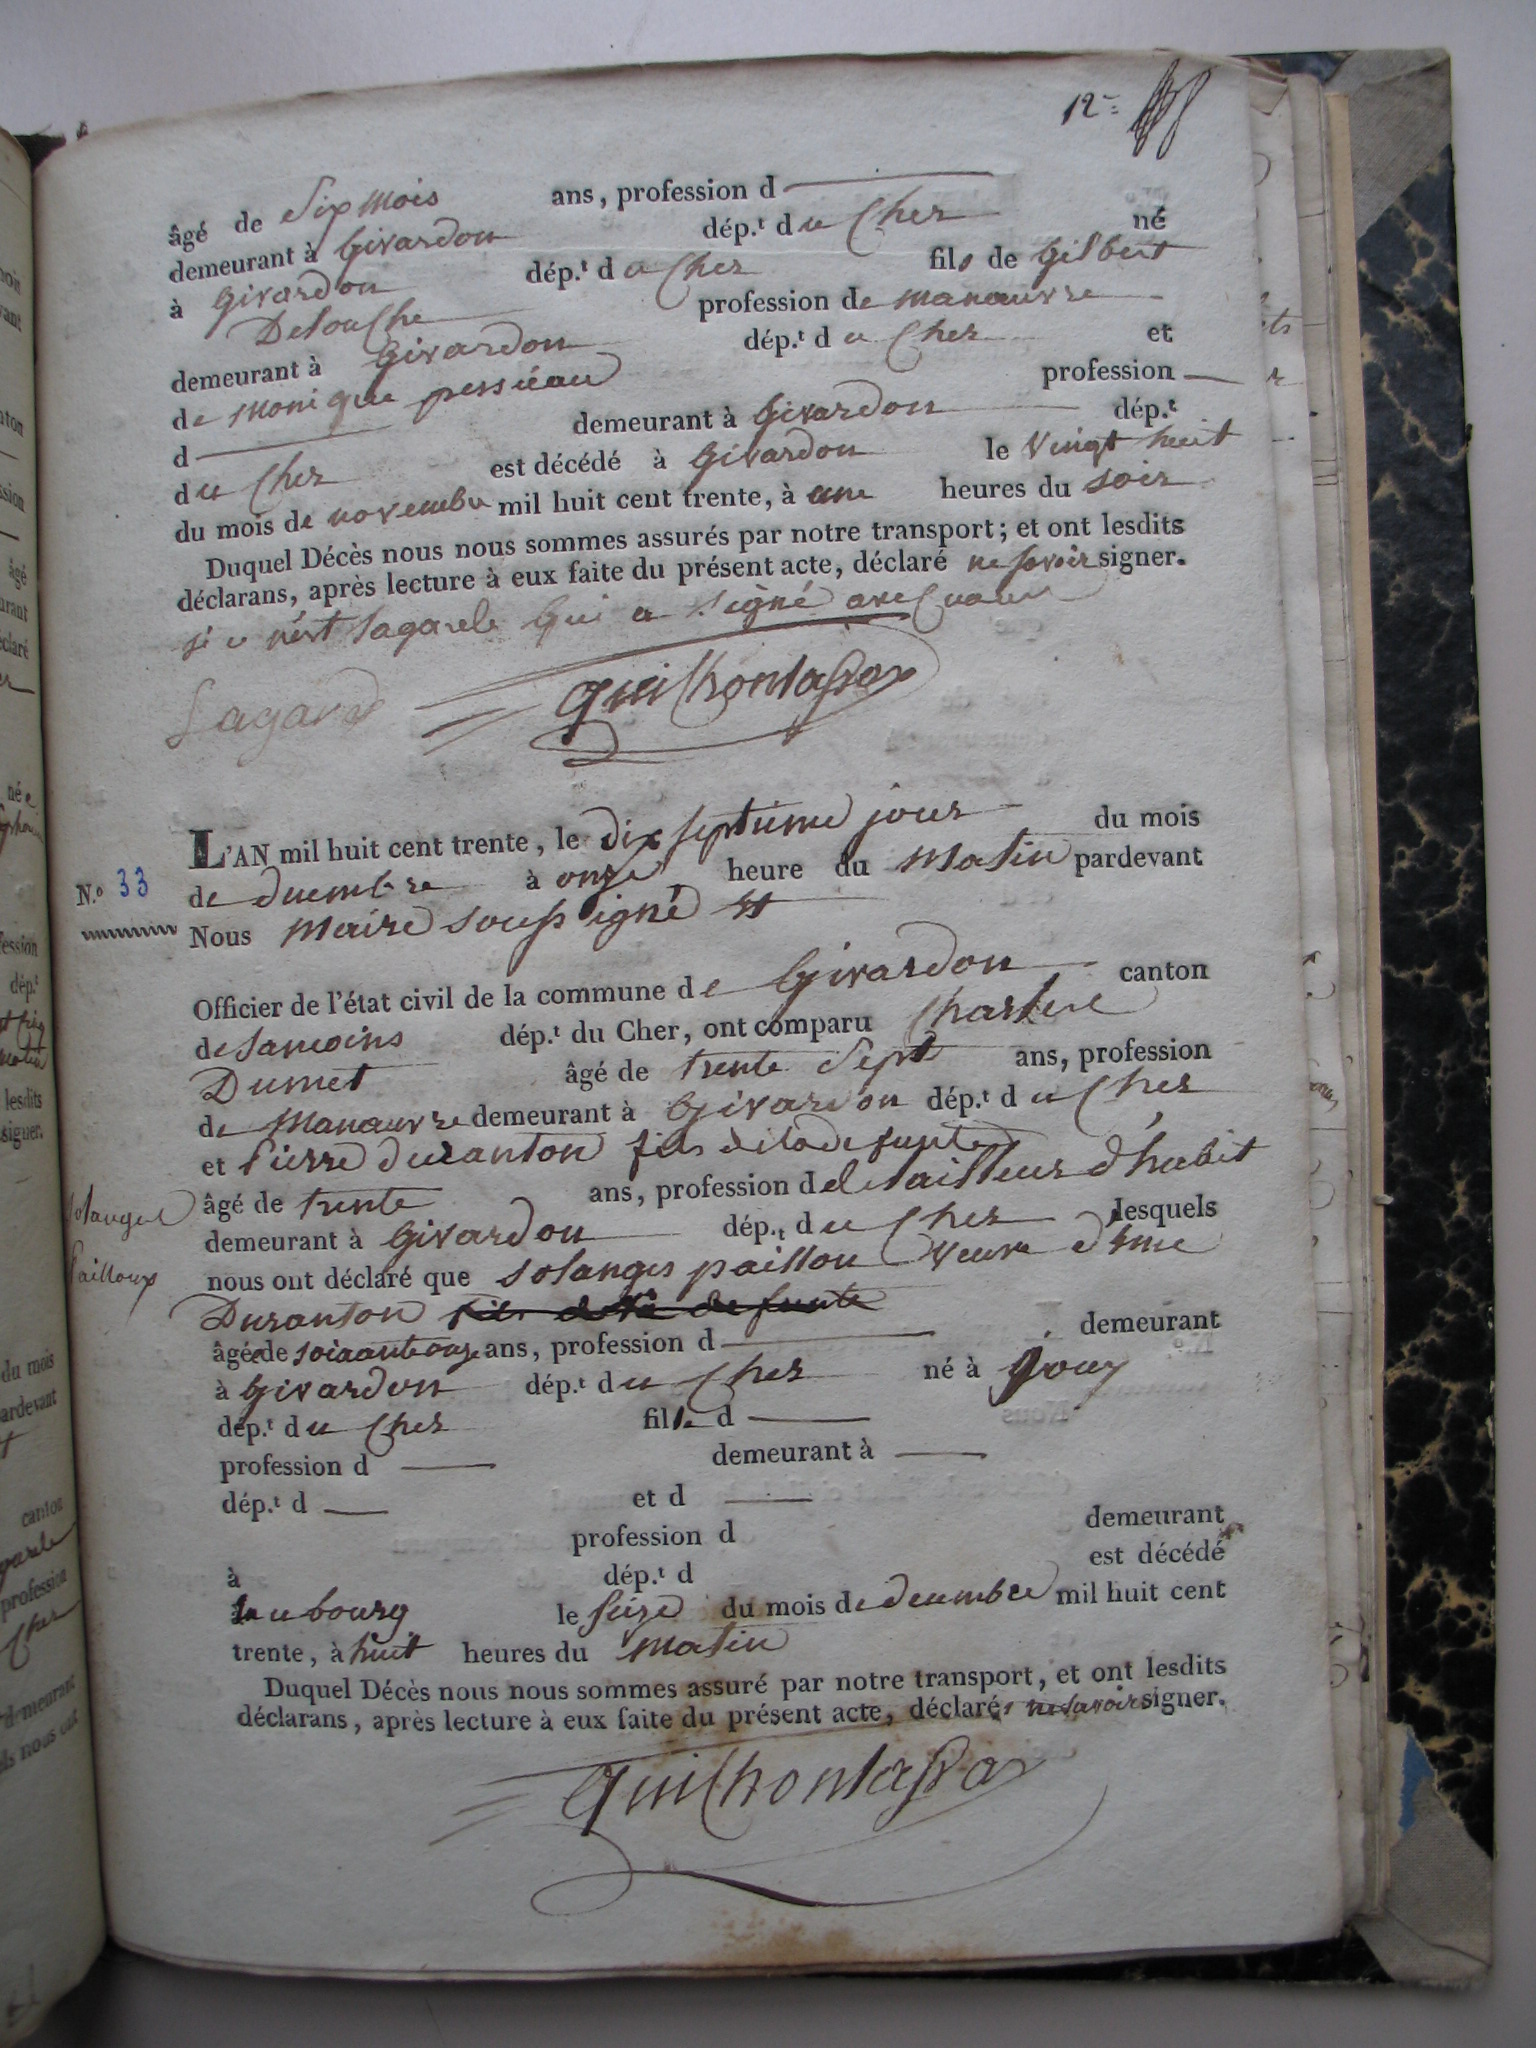 12.e
âgé de Six mois ans, profession d
demeurant à Givardon dép.t du Cher né
à Givardon dép.t du Cher fils de Gilbert
Delouche profession de manœuvre
demeurant à Givardon dép.t du Cher et
de monique pessieau profession
d demeurant à Givardon dép.t
du Cher est décédé à Givardon le vingt huit
du mois de novembre mil huit cent trente, à une heures du soir
Duquel Décès nous nous sommes assurés par notre transport; et ont lesdits
déclarans, après lecture à eux faite du présent acte, déclaré ne savoir signer.
si e n'est lagarde qui a signé avec nous
Lagarde
L'AN mil huit cent trente, le dix septieme jour du mois
N.o 33
de decembre à onze heure du matin pardevant
Nous Maire soussigné
Officier de l'état civil de la commune de Givardon canton
de Sancoins dép.t du Cher, ont comparu Charles
Dumet âgé de trente Sept ans, profession
de manœuvre demeurant à Givardon dép.t du Cher
et Pierre duranton fils de la defunte
âgé de trente ans, profession de tailleur d'habit
demeurant à Givardon dép.t du Cher lesquels
Solange
Pailloux
nous ont déclaré que Solanges paillou veuve
Duranton fils de la defunte
âgée de soiaante onze ans, profession d demeurant
à Givardon dép.t du Cher né à Jouy
dép.t du Cher fille d
profession d demeurant à
dép.t d et d
profession d demeurant
à dép.t d est décédé
au bourg le Seize du mois de decembre mil huit cent
trente, à huit heures du matin
Duquel Décès nous nous sommes assuré par notre transport, et ont lesdits
déclarans, après lecture à eux faite du présent acte, déclarés ne savoir signer.